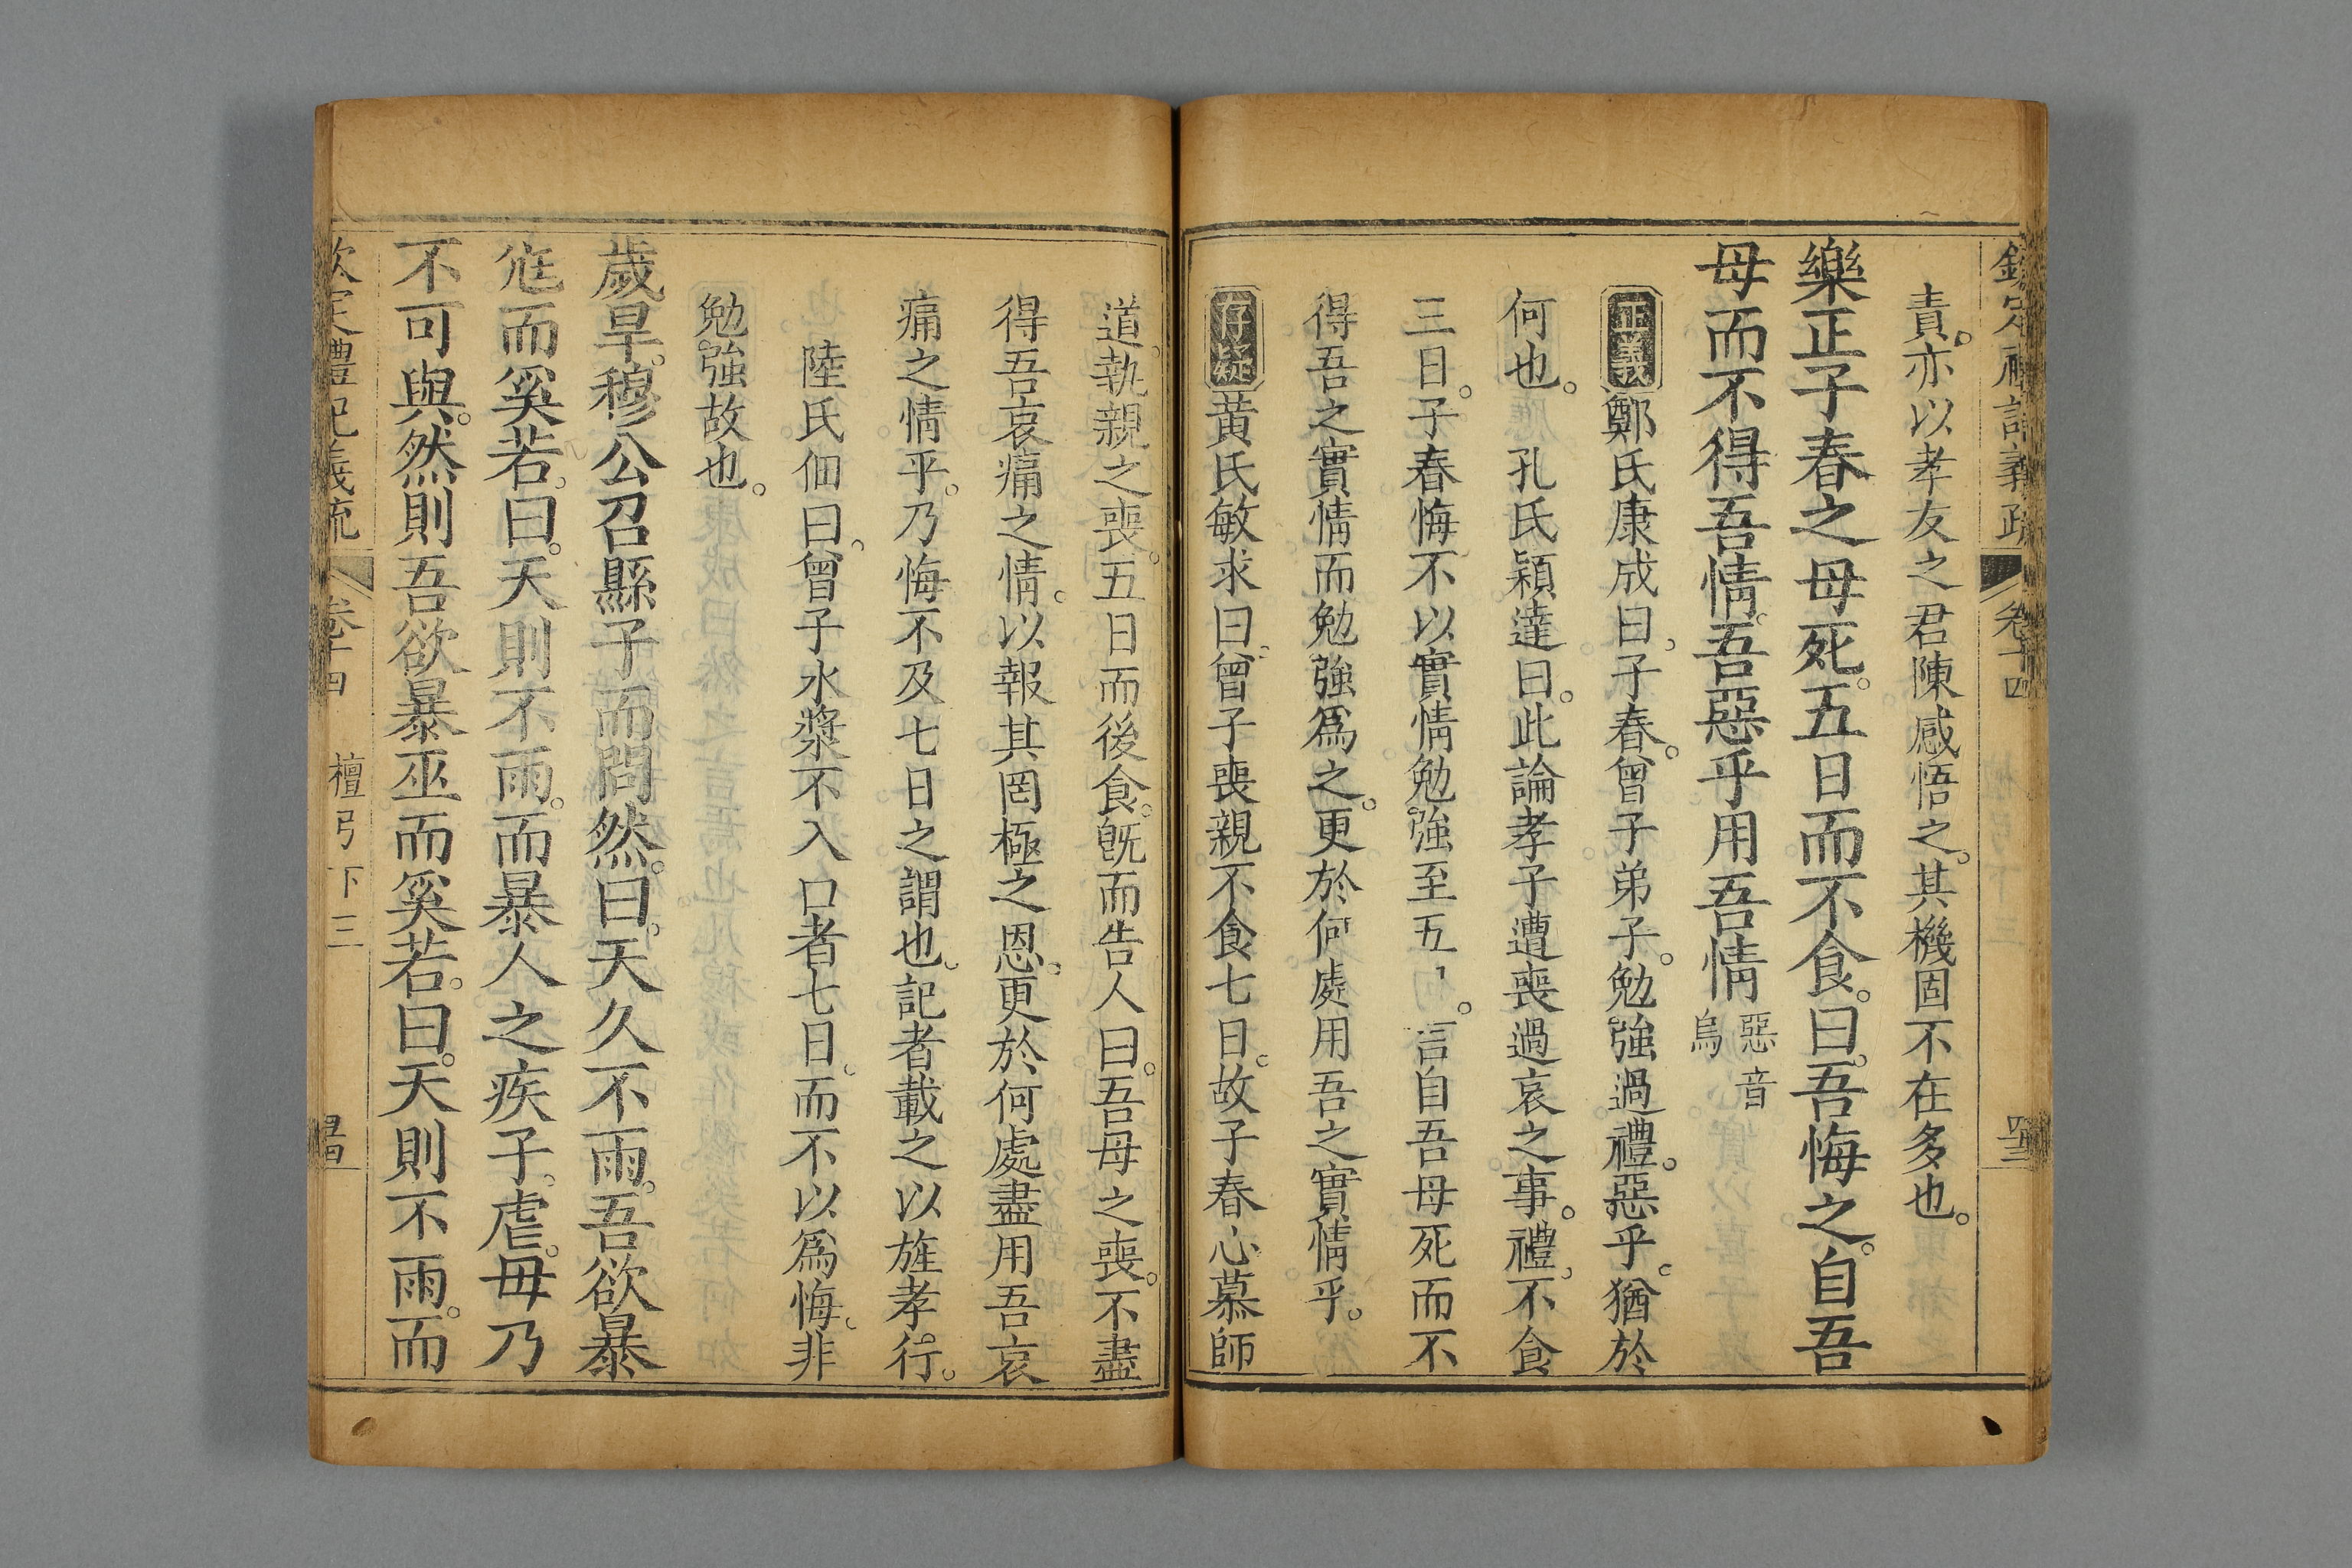 欽定禮記義疏 卷十四
責。亦以孝友之君陳感悟之。其機固不在多也。
樂正子春之母死。五日而不食。曰。吾悔之。自吾
母而不得吾情。吾惡乎用吾情
惡音
烏
正義 鄭氏康成曰。子春。曾子弟子。勉強過禮。惡乎。猶於
何也。 孔氏穎達曰。此論孝子遭喪過哀之事。禮。不食
三日。子春悔不以實情勉強至五 。言自吾母死而不
得吾之實情而勉強爲之。更於何處用吾之實情乎。
存疑 黃氏敏求曰。曾子喪親不食七日。故子春心慕師
道。執親之喪。五日而後食。旣而告人曰。吾母之喪。不盡
得吾哀痛之情。以報其罔極之恩。更於何處盡用吾哀
痛之情乎。乃悔不及七日之謂也。記者載之以旌孝行。
陸氏佃曰。曾子水漿不入口者七日。而不以爲悔。非
勉強故也。
歲旱。穆公召縣子而問然。曰。天久不雨。吾欲暴
尫而奚若。曰。天則不雨。而暴人之疾子。虐。毋乃
不可與。然則吾欲暴巫而奚若。曰。天則不雨。而
欽定禮記義疏 卷十四 檀弓下三